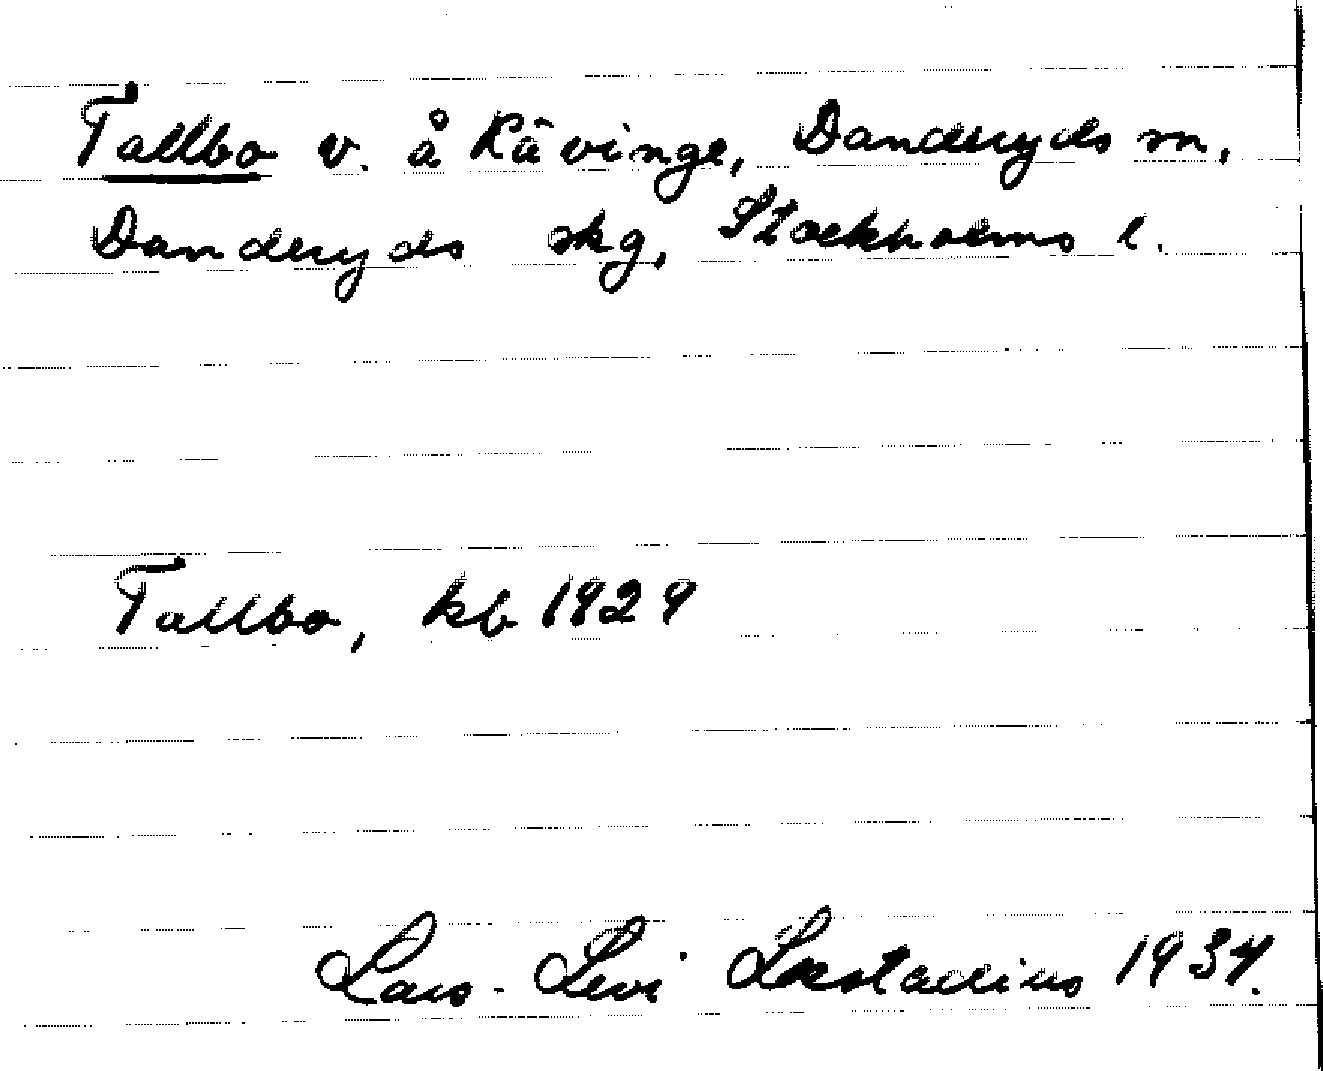 Tallbo v. å Kävinge, Danderyds sn,
Danderyds skg, Stockholms l.
Tallbo, kb 1929
Lars-Levi Læstadius 1934.